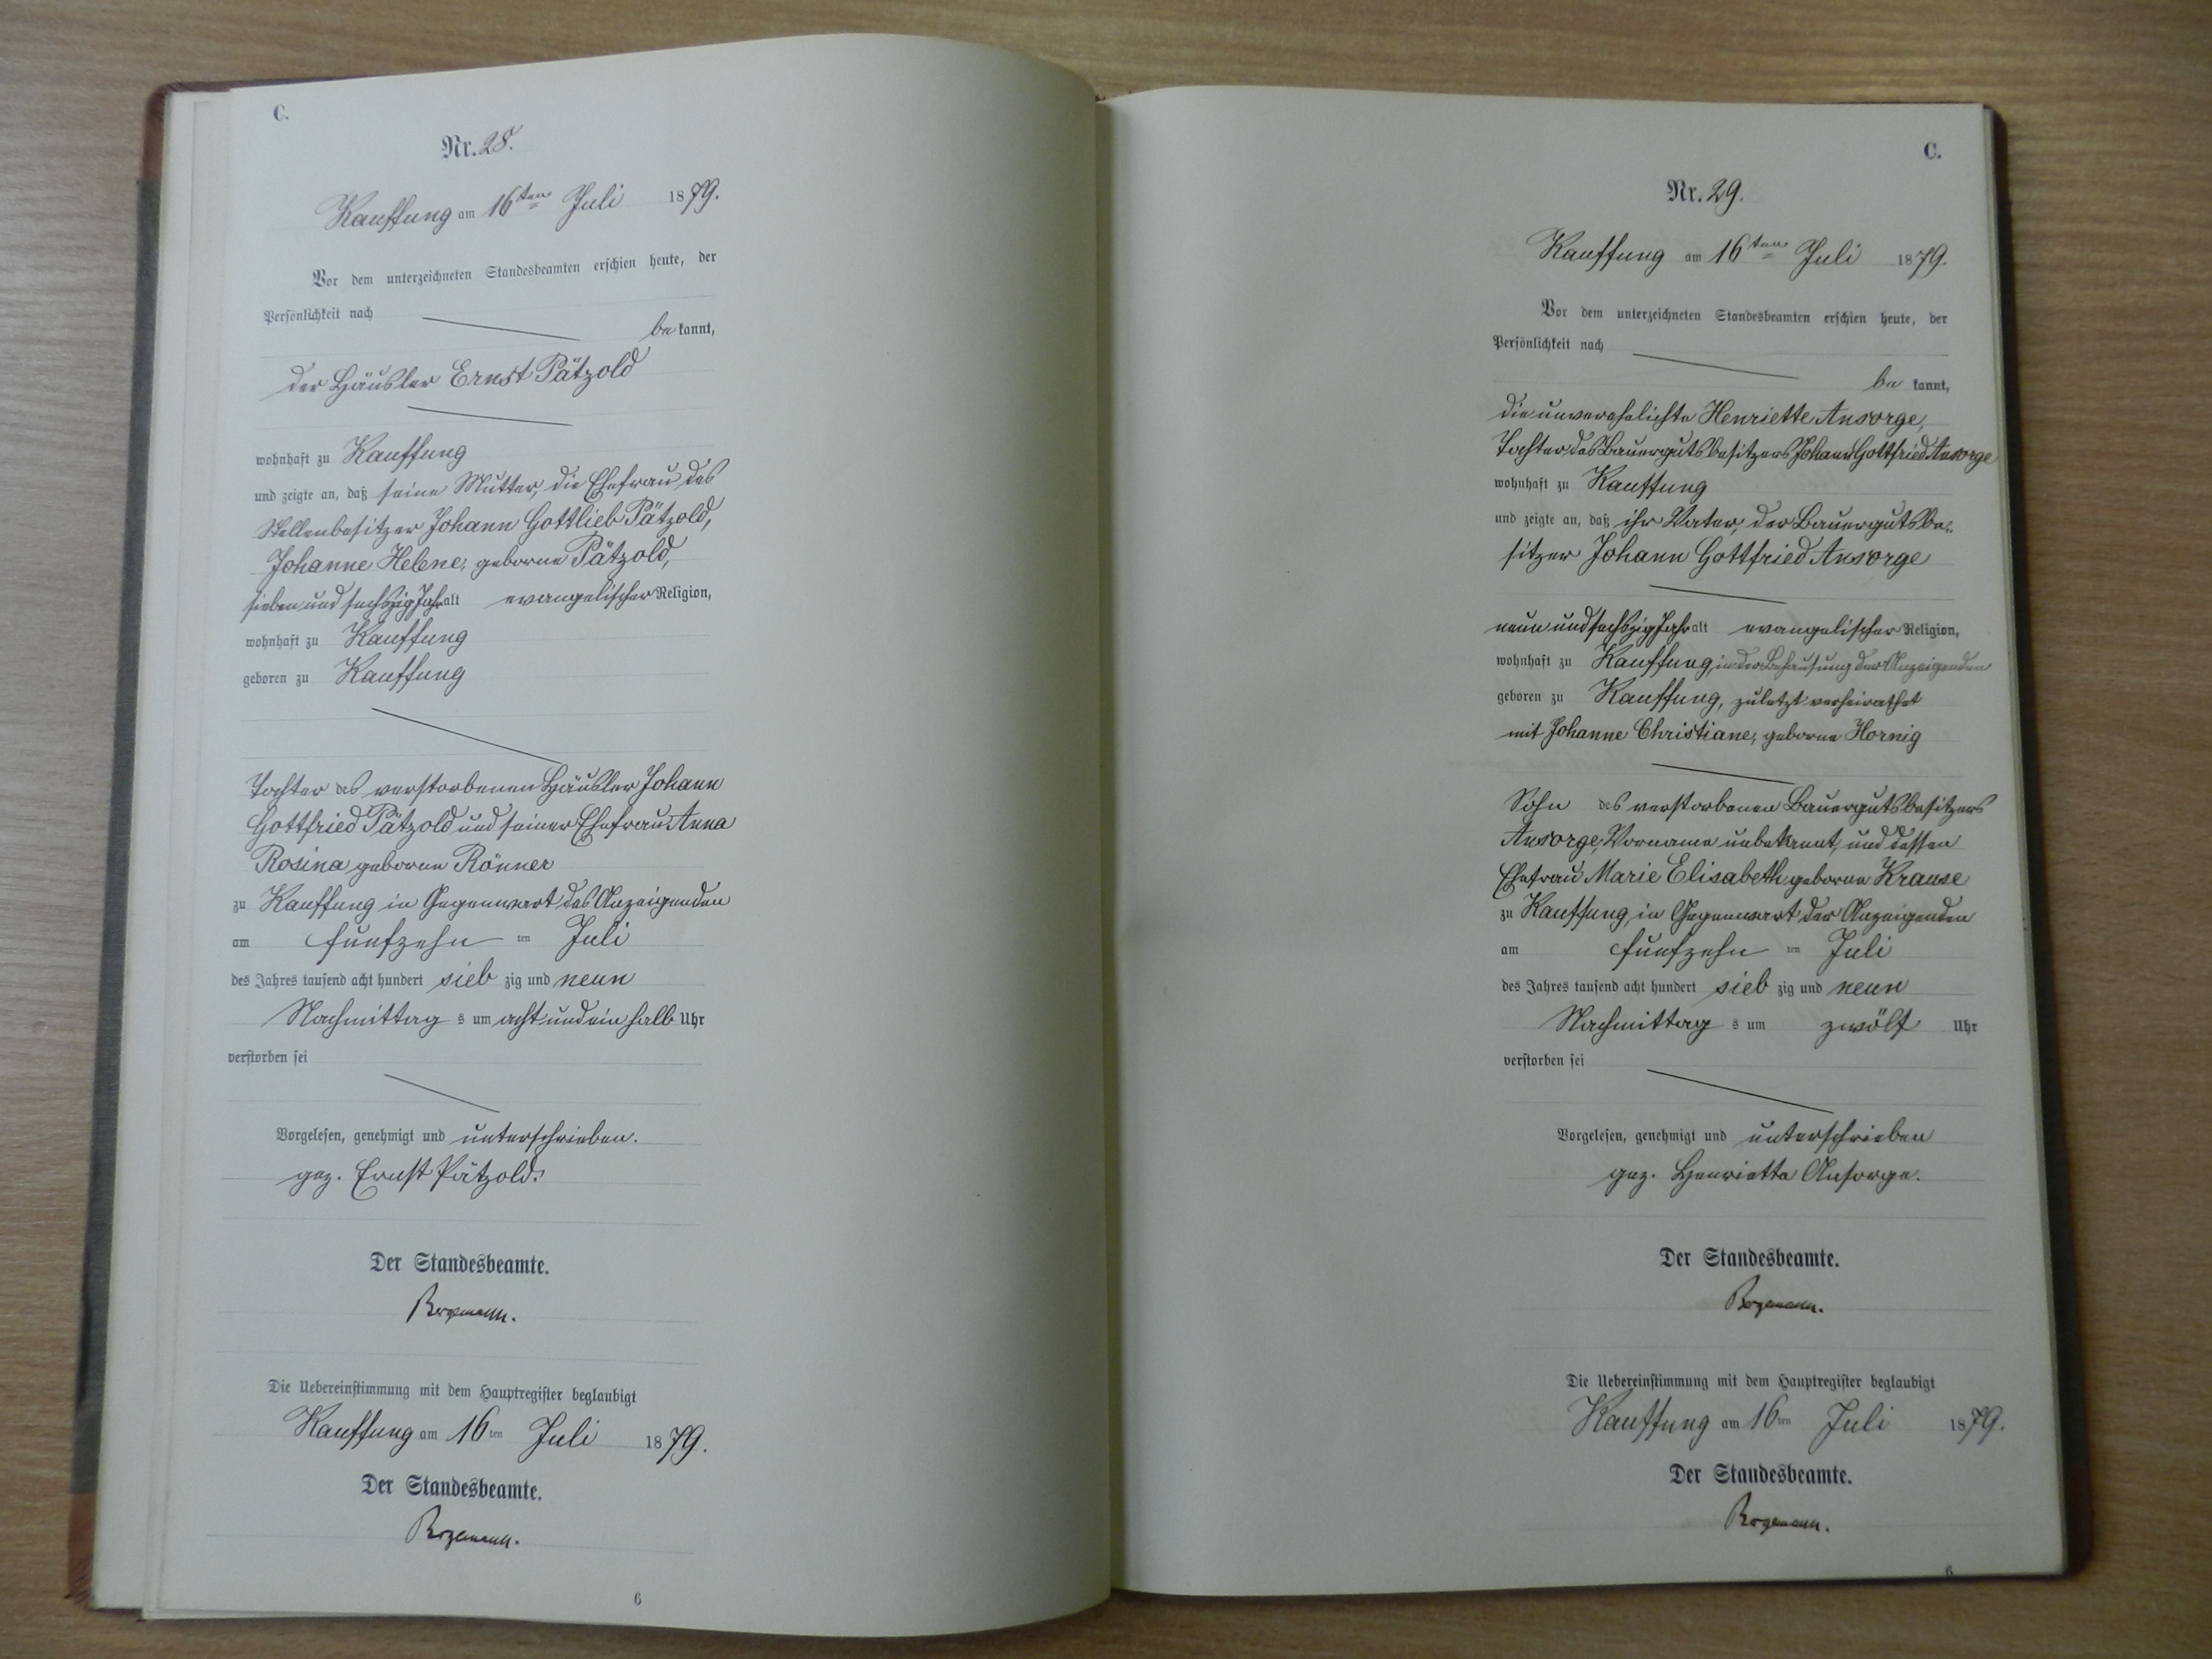 C.
Nr. 28.
Kauffung am 16ten Juli 1879.
Vor dem unterzeichneten Standesbeamten erschien heute, der
Persönlichkeit nach
be kannt,
der Häusler Ernst Pätzold
wohnhaft zu Kauffung
und zeigte an, daß seine Mutter, die Ehefrau des
Stellenbesitzer Johann Gottlieb Pätzold,
Johanne Helene, geborne Pätzold,
sieben und sechszig Jahr alt evangelischer Religion,
wohnhaft zu Kauffung
geboren zu Kauffung
Tochter des verstorbenen Häusler Johann
Gottfried Pätzold und seiner Ehefrau Anna
Rosina geborne Rönner
zu Kauffung in Gegenwart des Anzeigenden
am fünfzehn ten Juli
des Jahres tausend acht hundert sieb zig und neun
Nachmittag s um acht und ein halb Uhr
verstorben sei
Vorgelesen, genehmigt und unterschrieben.
gez. Ernst Pätzold.
Der Standesbeamte.
Bergmann.
Die Uebereinstimmung mit dem Hauptregister beglaubigt
Kauffung am 16ten Juli 1879.
Der Standesbeamte.
Bergmann.
6
C.
Nr. 29.
Kauffung am 16ten Juli 1879.
Vor dem unterzeichneten Standesbeamten erschien heute, der
Persönlichkeit nach
be kannt,
die unverehelichte Henriette Ansorge,
Tochter des Bauergutsbesitzers Johann Gottfried Ansorge
wohnhaft zu Kauffung
und zeigte an, daß ihr Vater, der Bauergutsbe-
sitzer Johann Gottfried Ansorge
neun und sechszig Jahr alt evangelischer Religion,
wohnhaft zu Kauffung, in der Behausung der Anzeigenden
geboren zu Kauffung, zuletzt verheirathet
mit Johanne Christiane, geborne Hornig
Sohn des verstorbenen Bauergutsbesitzers
Ansorge, Vorname unbekannt, und dessen
Ehefrau Marie Elisabeth geborne Krause
zu Kauffung, in Gegenwart der Anzeigenden
am fünfzehn ten Juli
des Jahres tausend acht hundert sieb zig und neun
Nachmittag s um zwölf Uhr
verstorben sei
Vorgelesen, genehmigt und unterschrieben
gez. Henriette Ansorge.
Der Standesbeamte.
Bergmann.
Die Uebereinstimmung mit dem Hauptregister beglaubigt
Kauffung am 16ten Juli 1879.
Der Standesbeamte.
Bergmann.
6